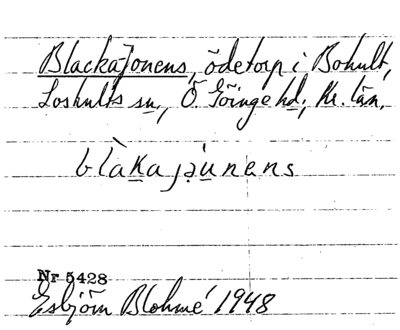 Blackajonens, ödetorp i Bohult,
Loshults sn., Ö. Göinge hd., Kr. län.
blàkajùnens
Nr 5428
Esbjörn Blohmé 1948